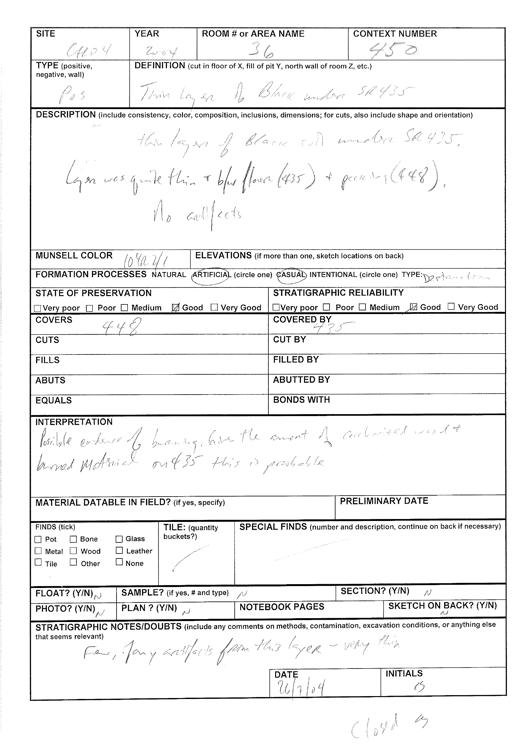 SITE YEAR ROOM # or AREA NAME CONTEXT NUMBER
CH04 2004 36 450
TYPE (positive, negative, wall) DEFINITION (cut in floor of X, fill of pit Y, north wall of room Z, etc.)
Pos Thin layer of Black under SR 435
DESCRIPTION (include consistency, color, composition, inclusions, dimensions; for cuts, also include shape and orientation)
thin layer of Black soil under SR 435.
Layer was quite thin + b/w floor (435) + (448).
No artifacts
MUNSELL COLOR 10YR 2/1 ELEVATIONS (if more than one, sketch locations on back)
FORMATION PROCESSES NATURAL ARTIFICIAL (circle one) CASUAL INTENTIONAL (circle one) TYPE:
STATE OF PRESERVATION STRATIGRAPHIC RELIABILITY
Very poor Poor Medium Good Very Good Very poor Poor Medium Good Very Good
COVERS 448 COVERED BY 435
CUTS CUT BY
FILLS FILLED BY
ABUTS ABUTTED BY
EQUALS BONDS WITH
INTERPRETATION
Possible evidence of burning. Given the amount of carbonized wood +
burned material on 435 this is probable
MATERIAL DATABLE IN FIELD? (if yes, specify) PRELIMINARY DATE
FINDS (tick) TILE: (quantity buckets?) SPECIAL FINDS (number and description, continue on back if necessary)
Pot Bone Glass
Metal Wood Leather
Tile Other None
FLOAT? (Y/N) N SAMPLE? (if yes, # and type) N SECTION? (Y/N) N
PHOTO? (Y/N) N PLAN ? (Y/N) N NOTEBOOK PAGES SKETCH ON BACK? (Y/N) N
STRATIGRAPHIC NOTES/DOUBTS (include any comments on methods, contamination, excavation conditions, or anything else
that seems relevant)
Few, if any artifacts from this layer - very thin
DATE INITIALS
26/7/04
Closed